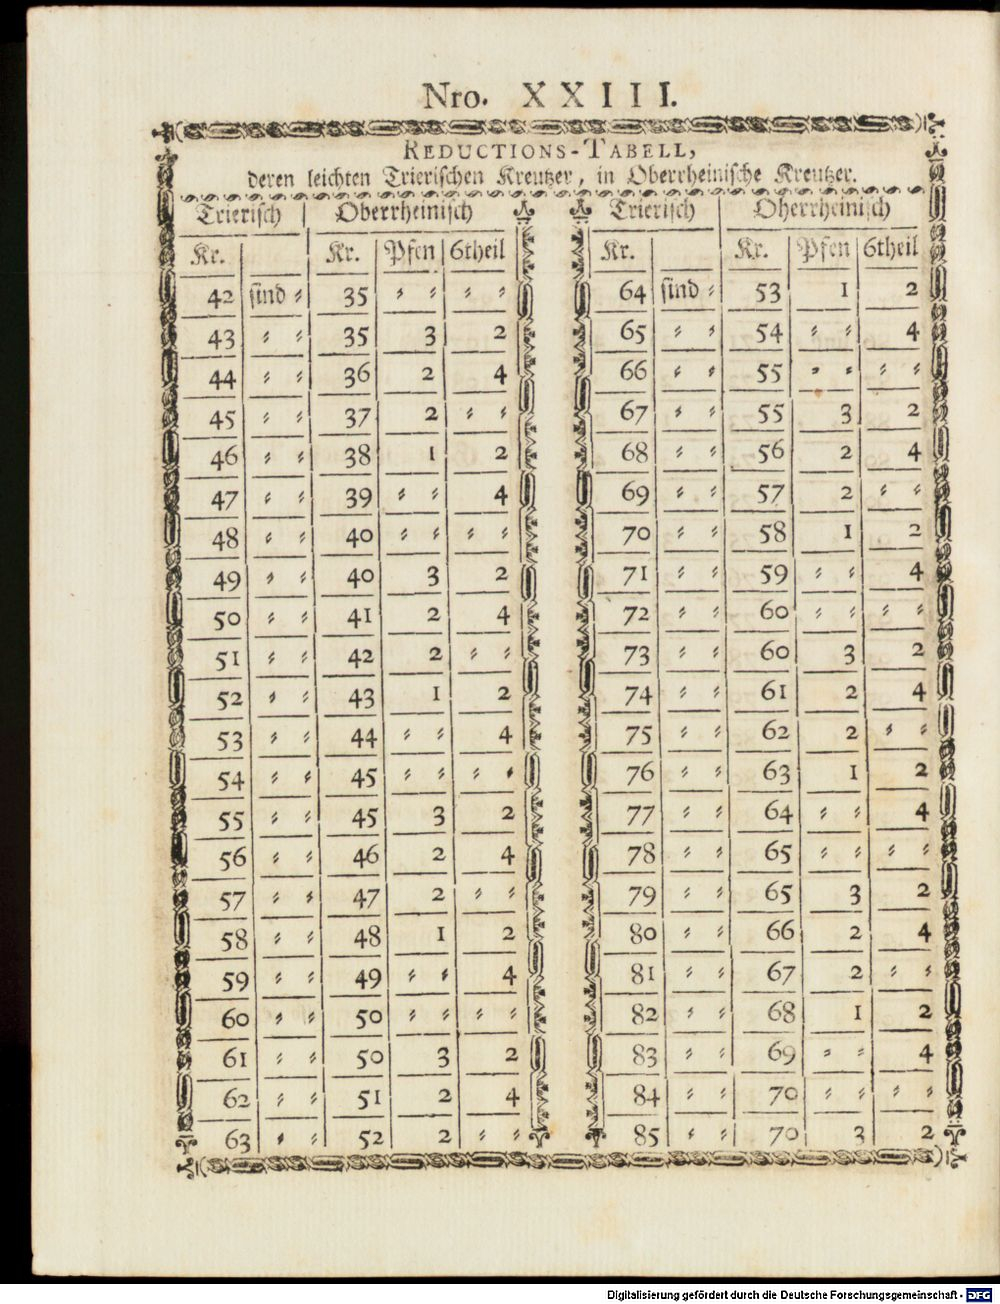 Nro. XXIII.
REDUCTIONS-TABELL,
deren leichten Trierischen Kreutzer, in Oberrheinische Kreutzer.
Trierisch Oberrheinisch
Kr. Kr. Pfen 6theil
42 sind ⸗ 35 ⸗ ⸗ ⸗ ⸗
43 ⸗ ⸗ 35 3 2
44 ⸗ ⸗ 36 2 4
45 ⸗ ⸗ 37 2 ⸗ ⸗
46 ⸗ ⸗ 38 1 2
47 ⸗ ⸗ 39 ⸗ ⸗ 4
48 ⸗ ⸗ 40 ⸗ ⸗ ⸗ ⸗
49 ⸗ ⸗ 40 3 2
50 ⸗ ⸗ 41 2 4
51 ⸗ ⸗ 42 2 ⸗ ⸗
52 ⸗ ⸗ 43 1 2
53 ⸗ ⸗ 44 ⸗ ⸗ 4
54 ⸗ ⸗ 45 ⸗ ⸗ ⸗ ⸗
55 ⸗ ⸗ 45 3 2
56 ⸗ ⸗ 46 2 4
57 ⸗ ⸗ 47 2 ⸗ ⸗
58 ⸗ ⸗ 48 1 2
59 ⸗ ⸗ 49 ⸗ ⸗ 4
60 ⸗ ⸗ 50 ⸗ ⸗ ⸗ ⸗
61 ⸗ ⸗ 50 3 2
62 ⸗ ⸗ 51 2 4
63 ⸗ ⸗ 52 2 ⸗ ⸗
Trierisch Oherrheinisch
Kr. Kr. Pfen 6theil
64 sind ⸗ 53 1 2
65 ⸗ ⸗ 54 ⸗ ⸗ 4
66 ⸗ ⸗ 55 ⸗ ⸗ ⸗ ⸗
67 ⸗ ⸗ 55 3 2
68 ⸗ ⸗ 56 2 4
69 ⸗ ⸗ 57 2 ⸗ ⸗
70 ⸗ ⸗ 58 1 2
71 ⸗ ⸗ 59 ⸗ ⸗ 4
72 ⸗ ⸗ 60 ⸗ ⸗ ⸗ ⸗
73 ⸗ ⸗ 60 3 2
74 ⸗ ⸗ 61 2 4
75 ⸗ ⸗ 62 2 ⸗ ⸗
76 ⸗ ⸗ 63 1 2
77 ⸗ ⸗ 64 ⸗ ⸗ 4
78 ⸗ ⸗ 65 ⸗ ⸗ ⸗ ⸗
79 ⸗ ⸗ 65 3 2
80 ⸗ ⸗ 66 2 4
81 ⸗ ⸗ 67 2 ⸗ ⸗
82 ⸗ ⸗ 68 1 2
83 ⸗ ⸗ 69 ⸗ ⸗ 4
84 ⸗ ⸗ 70 ⸗ ⸗ ⸗ ⸗
85 ⸗ ⸗ 70 3 2
Digitalisierung gefördert durch die Deutsche Forschungsgemeinschaft - DFG